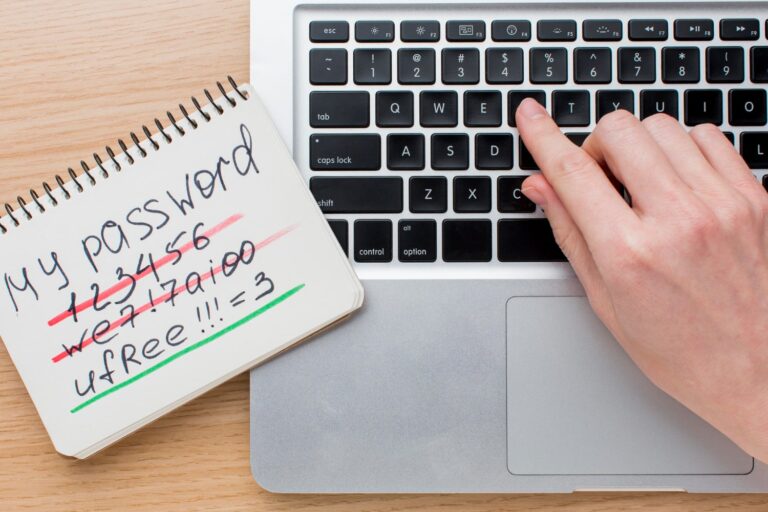 My password
123456
we7!7aioo
ufRee!!!=3
esc F1 F2 F3 F4 F5 F6 F7 F8 F9
~ ! 1 @ 2 # 3 $ 4 % 5 ^ 6 & 7 * 8 ( 9
tab Q W E T Y U I O
caps lock A S D L
shift Z X C
control alt option